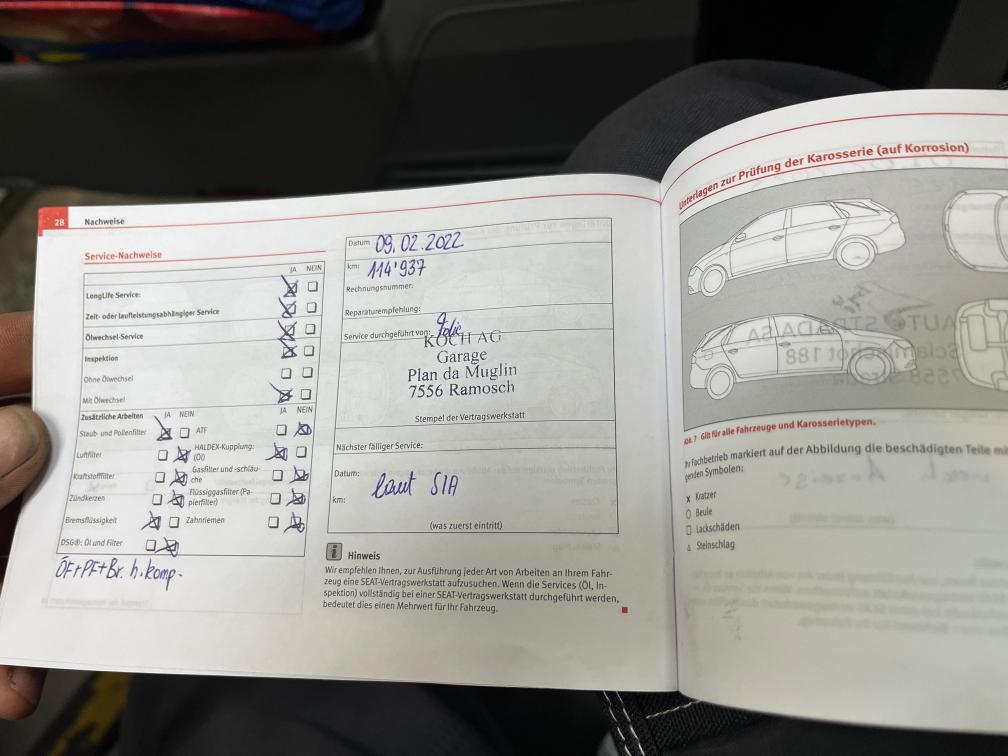 28 Nachweise
Service-Nachweise
JA NEIN
LongLife Service:
Zeit- oder laufleistungsabhängiger Service
Ölwechsel-Service
Inspektion
Ohne Ölwechsel
Mit Ölwechsel
Zusätzliche Arbeiten JA NEIN JA NEIN
Staub- und Pollenfilter ATF
Luftfilter HALDEX-Kupplung:
(Öl)
Kraftstofffilter Gasfilter und -schläu-
che
Zündkerzen Flüssiggasfilter (Pa-
pierfilter)
Bremsflüssigkeit Zahnriemen
DSG®: Öl und Filter
ÖF+PF+Br. h. komp.
Datum 09.02.2022
km: 114'937
Rechnungsnummer:
Reparaturempfehlung:
Service durchgeführt von:
KOCH AG
Garage
Plan da Muglin
7556 Ramosch
Stempel der Vertragswerkstatt
Nächster fälliger Service:
Datum:
laut SIA
km:
(was zuerst eintritt)
Hinweis
Wir empfehlen Ihnen, zur Ausführung jeder Art von Arbeiten an Ihrem Fahr-
zeug eine SEAT-Vertragswerkstatt aufzusuchen. Wenn die Services (Öl, In-
spektion) vollständig bei einer SEAT-Vertragswerkstatt durchgeführt werden,
bedeutet dies einen Mehrwert für Ihr Fahrzeug.
Unterlagen zur Prüfung der Karosserie (auf Korrosion)
Abb. 7 Gilt für alle Fahrzeuge und Karosserietypen.
Ihr Fachbetrieb markiert auf der Abbildung die beschädigten Teile mi
genden Symbolen:
x Kratzer
○ Beule
□ Lackschäden
△ Steinschlag